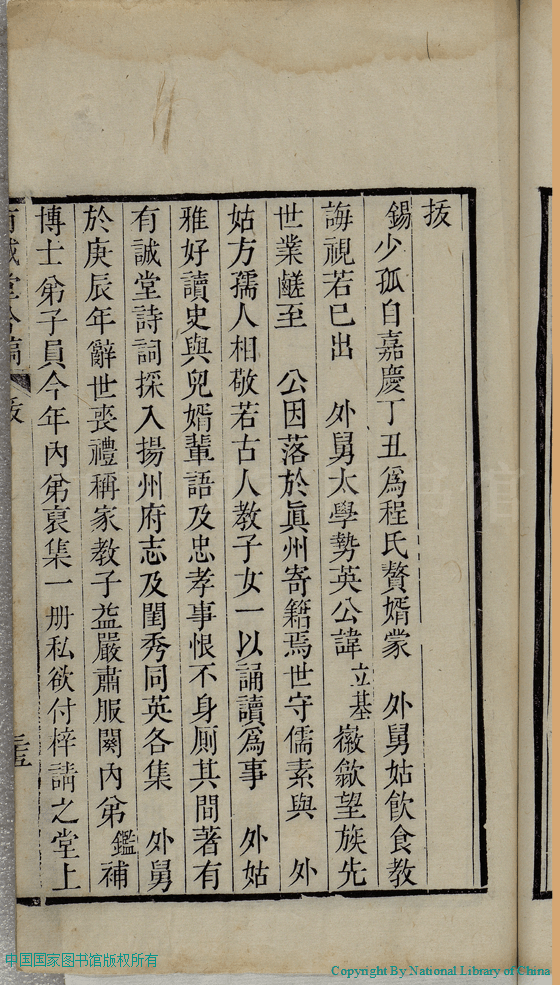 跋
錫少孤自嘉慶丁丑爲程氏贅婿蒙 外舅姑飲食教
誨視若已出 外舅太學勢英公諱立基徽歙望族先
世業鹺至 公因落於眞州寄籍焉世守儒素與 外
姑方孺人相敬若古人教子女一以誦讀爲事 外姑
雅好讀史與兒婿輩語及忠孝事恨不身厠其間著有
有誠堂詩詞採入揚州府志及閨秀同英各集 外舅
於庚辰年辭世喪禮稱家教子益嚴肅服闋內弟鑑補
博士弟子員今年內弟裒集一册私欲付梓請之堂上
有誠堂合稿 跋
中国国家图书馆版权所有
Copyright By National Library of China